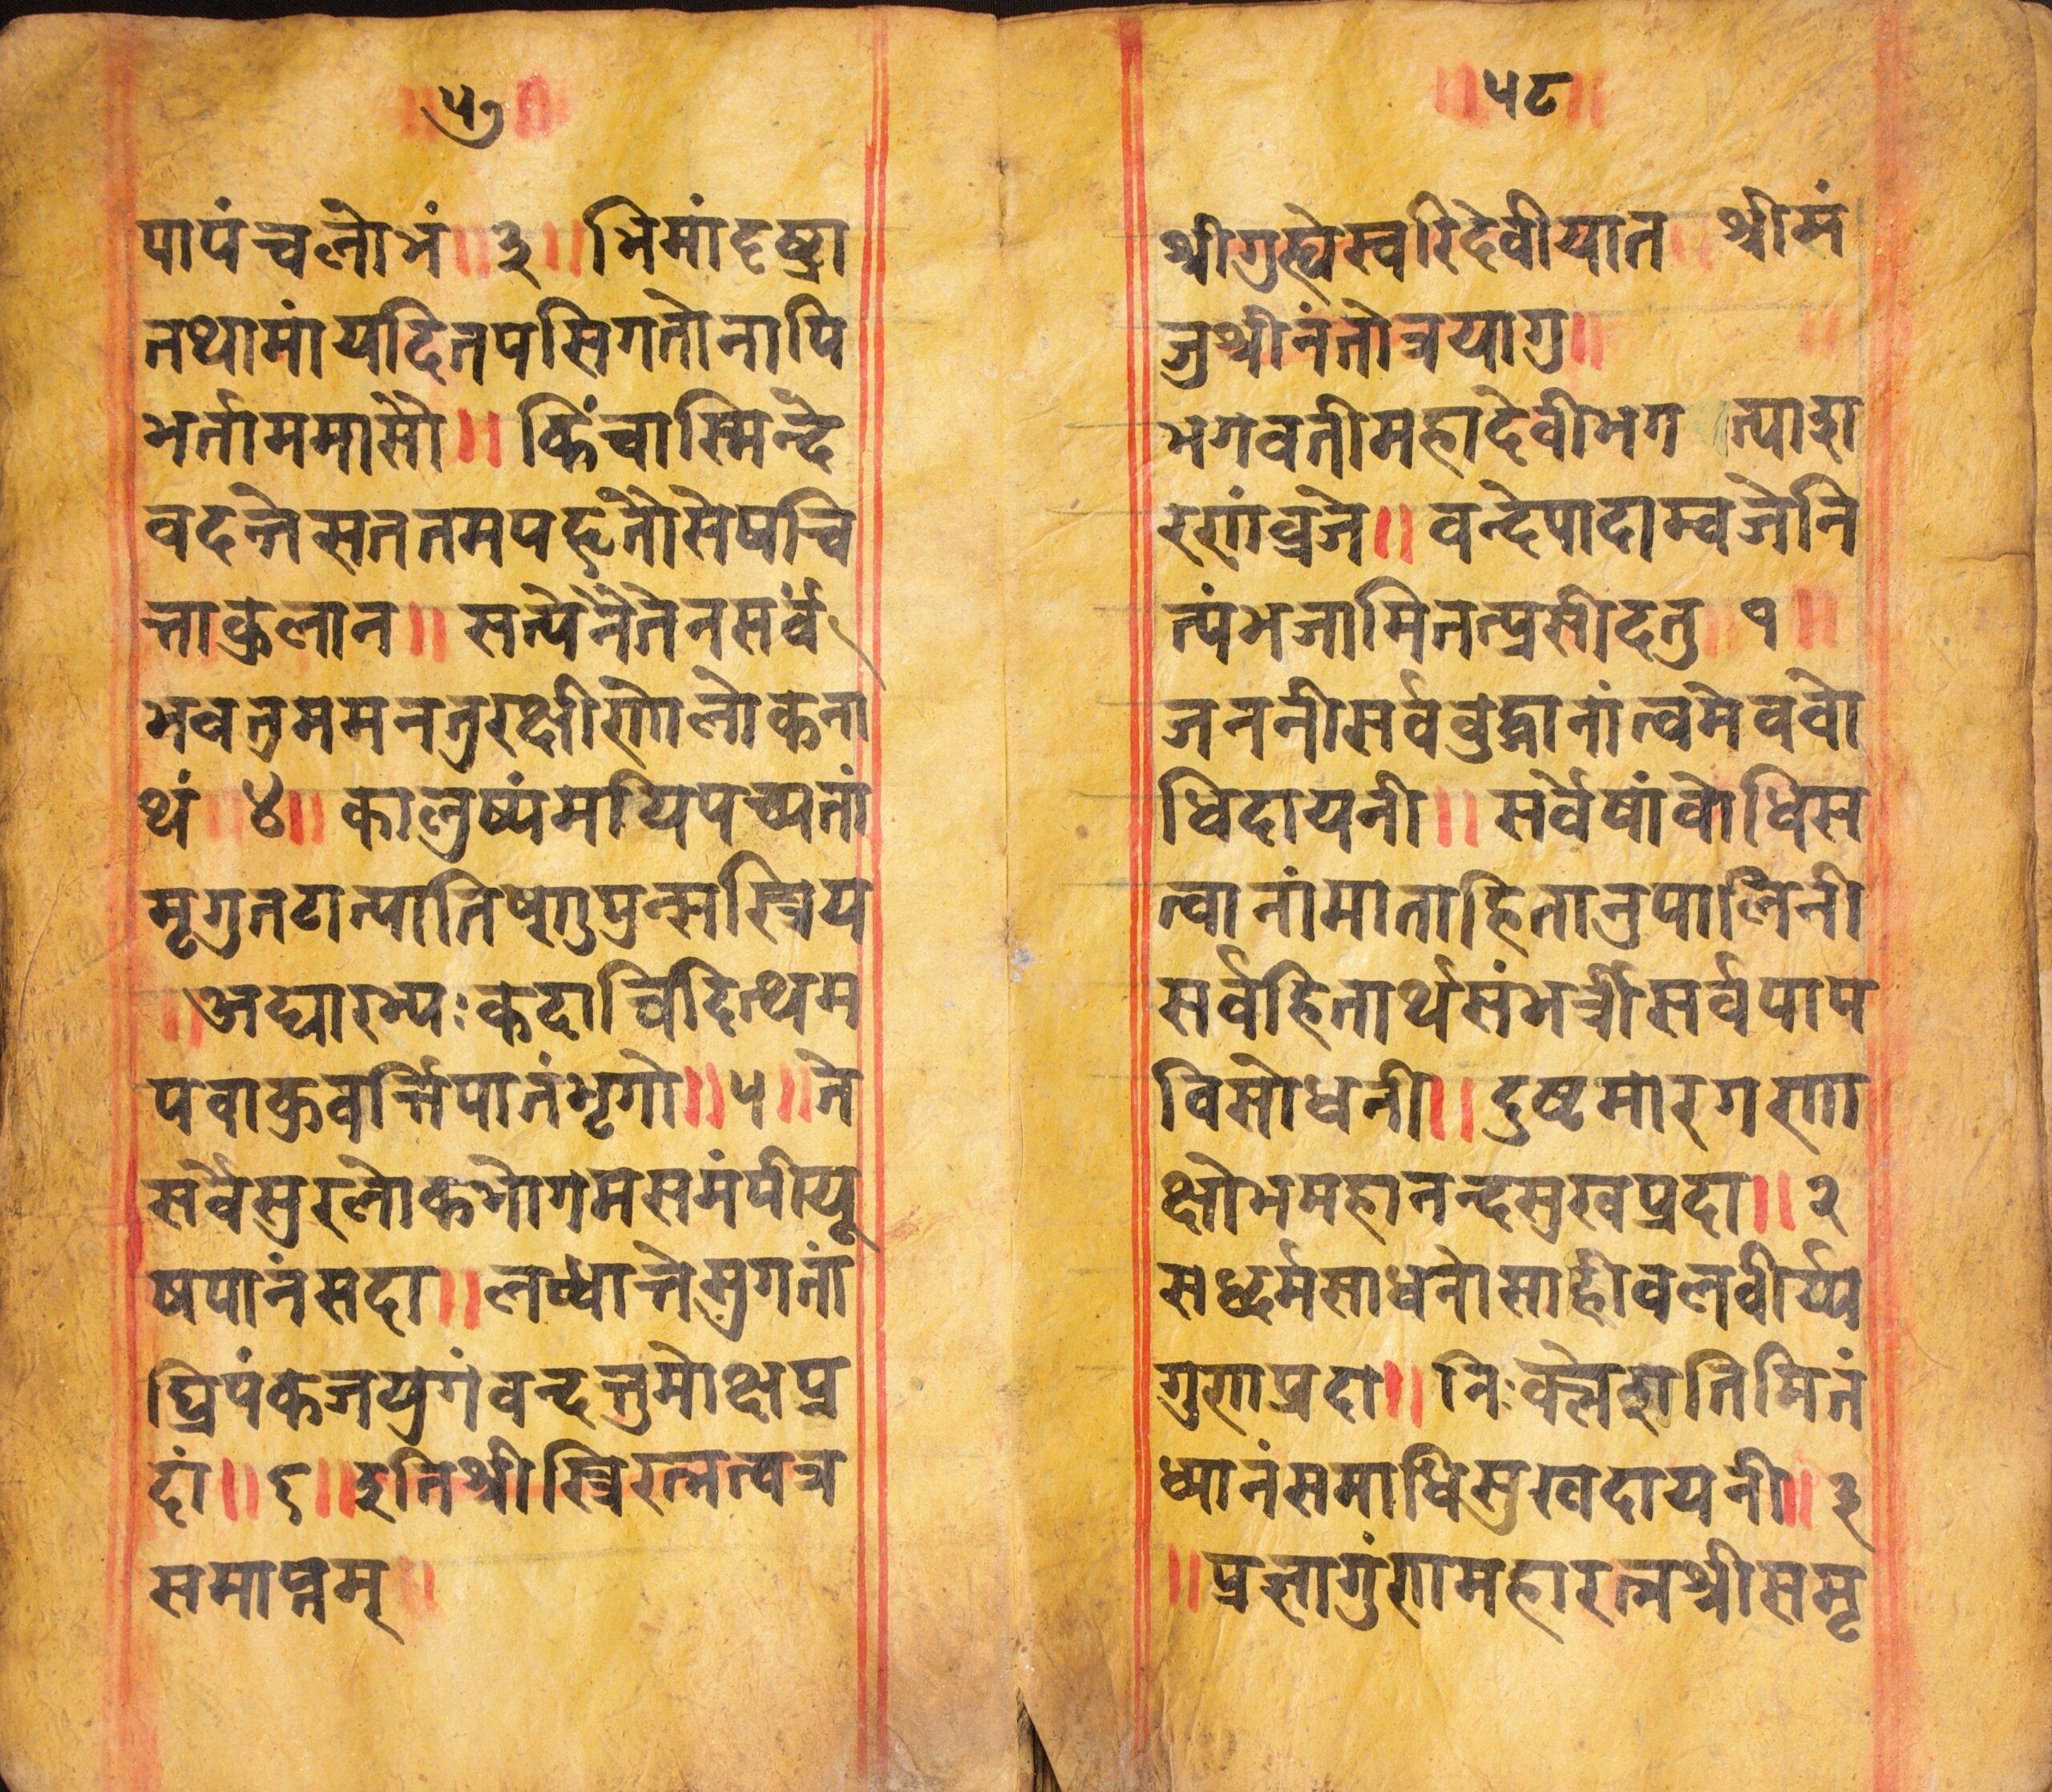 ५७
पापंचलोभं ॥ ३ ॥ भिमांदृष्ट्रा
नथामांयदितपसिगतोनापि
भर्ताममासौ ॥ किंचास्मिन्दे
वदन्तेसततमपह्नतौसेषचि
त्ताकुलान ॥ सत्येनैतेनसर्वं
भवतुममनतुरक्षीणोलोकना
थं ॥ ४ ॥ कालुष्यंमयिपच्यतां
मृगुतटात्पातिष्णुपुन्मस्त्रिय
॥ अद्यारभ्यःकदाचिदित्थम
पवाकुवर्त्तिपातंभृगो ॥ ५ ॥ ते
सर्वेसुरलोकभोगमसमंपीयू
षपानंसदा ॥ लब्धान्तेसुगतां
घ्रिपंकजयुगंवन्दन्तुमोक्षप्र
दां ॥ ६ ॥ इतिश्रीस्त्रिरत्नतवत्र
समाप्तम् ॥
५८
श्रीगुह्येस्वरिदेवीयात ॥ श्रीमं
जुश्रीनंतोत्रयागु ॥
भगवतीमहादेवीभग त्याश
रणंव्रजे ॥ वन्देपादाम्वजेनि
त्यंभजामितत्प्रसीदतु ॥ १ ॥
जननीसर्वबुद्धानांत्वमेववो
धिदायनी ॥ सर्वेषांवोधिस
त्वानांमाताहितानुपालिनी
सर्वहितार्थसंभर्त्रीसर्वपाप
विसोधनी ॥ दुष्टमारगणा
क्षोभमहानन्दसुखप्रदा ॥ २
सद्धर्मसाधनोसाहीवलवीर्य्य
गुणप्रदा ॥ निःक्लेशतिमितं
ध्यानंसमाधिसुखदायनी ॥ ३
॥ प्रज्ञागुंणमहारत्नश्रीसमृ